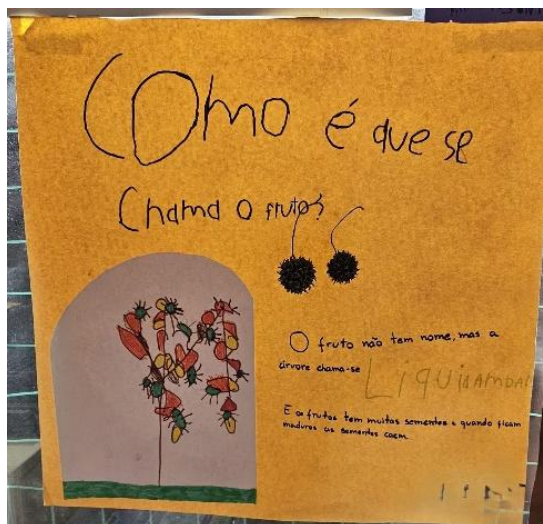 Como é que se
Chama o fruto?
O fruto não tem nome, mas a
árvore chama-se LIQUIDAMBAR
E os frutos tem muitas sementes e quando ficam
maduros as sementes caem.